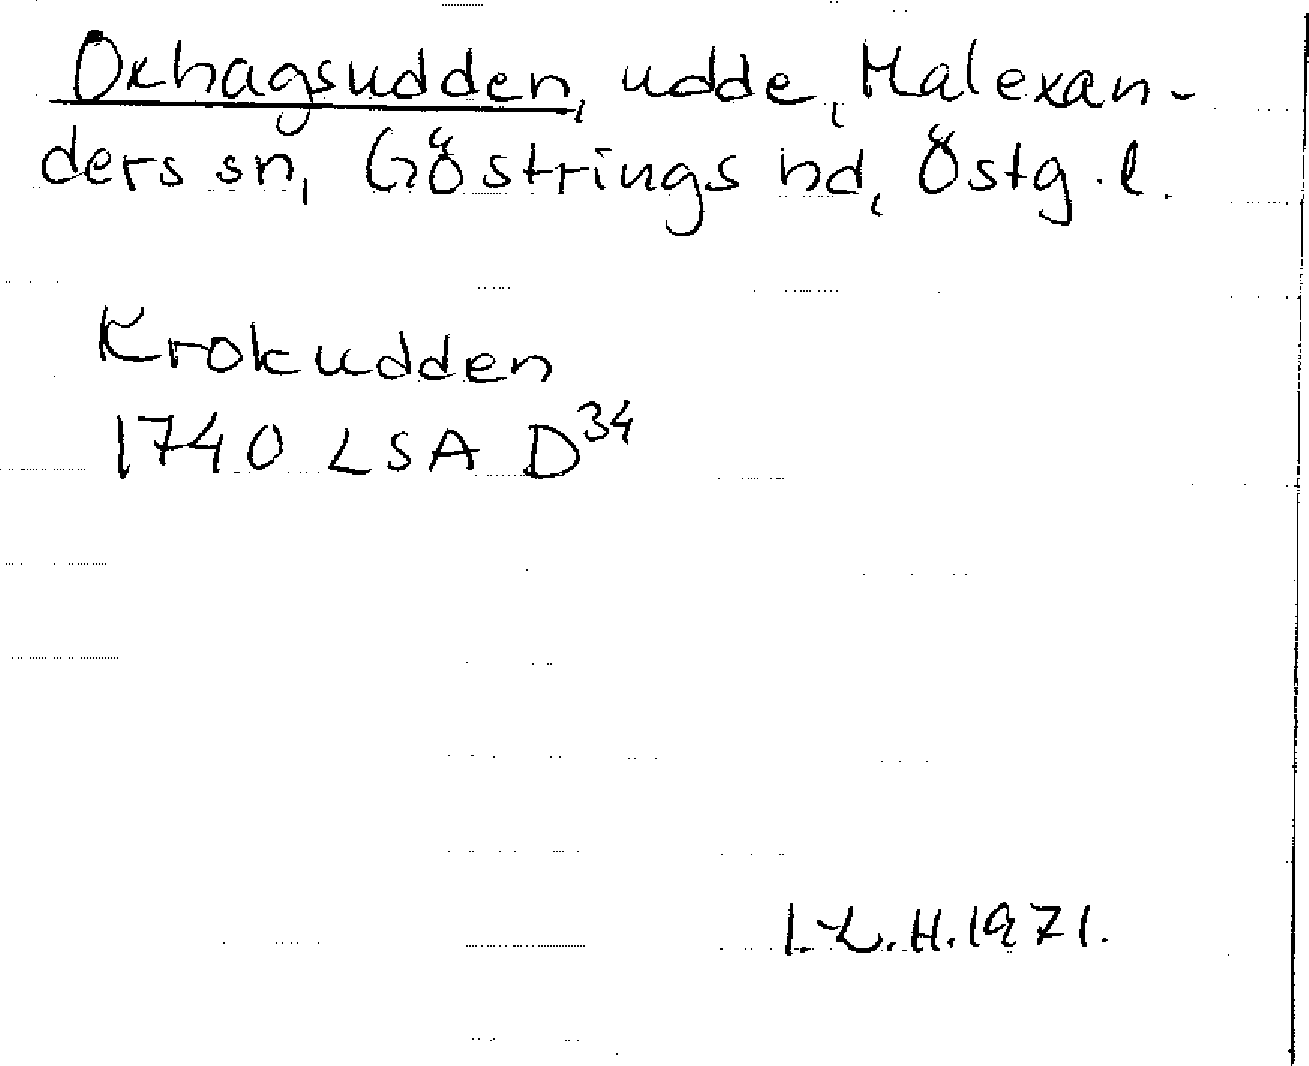 Oxhagsudden, udde, Malexan-
ders sn, Göstrings hd, Östg.l.
Krokudden
1740 LSA D³⁴
I.L.H.1971.